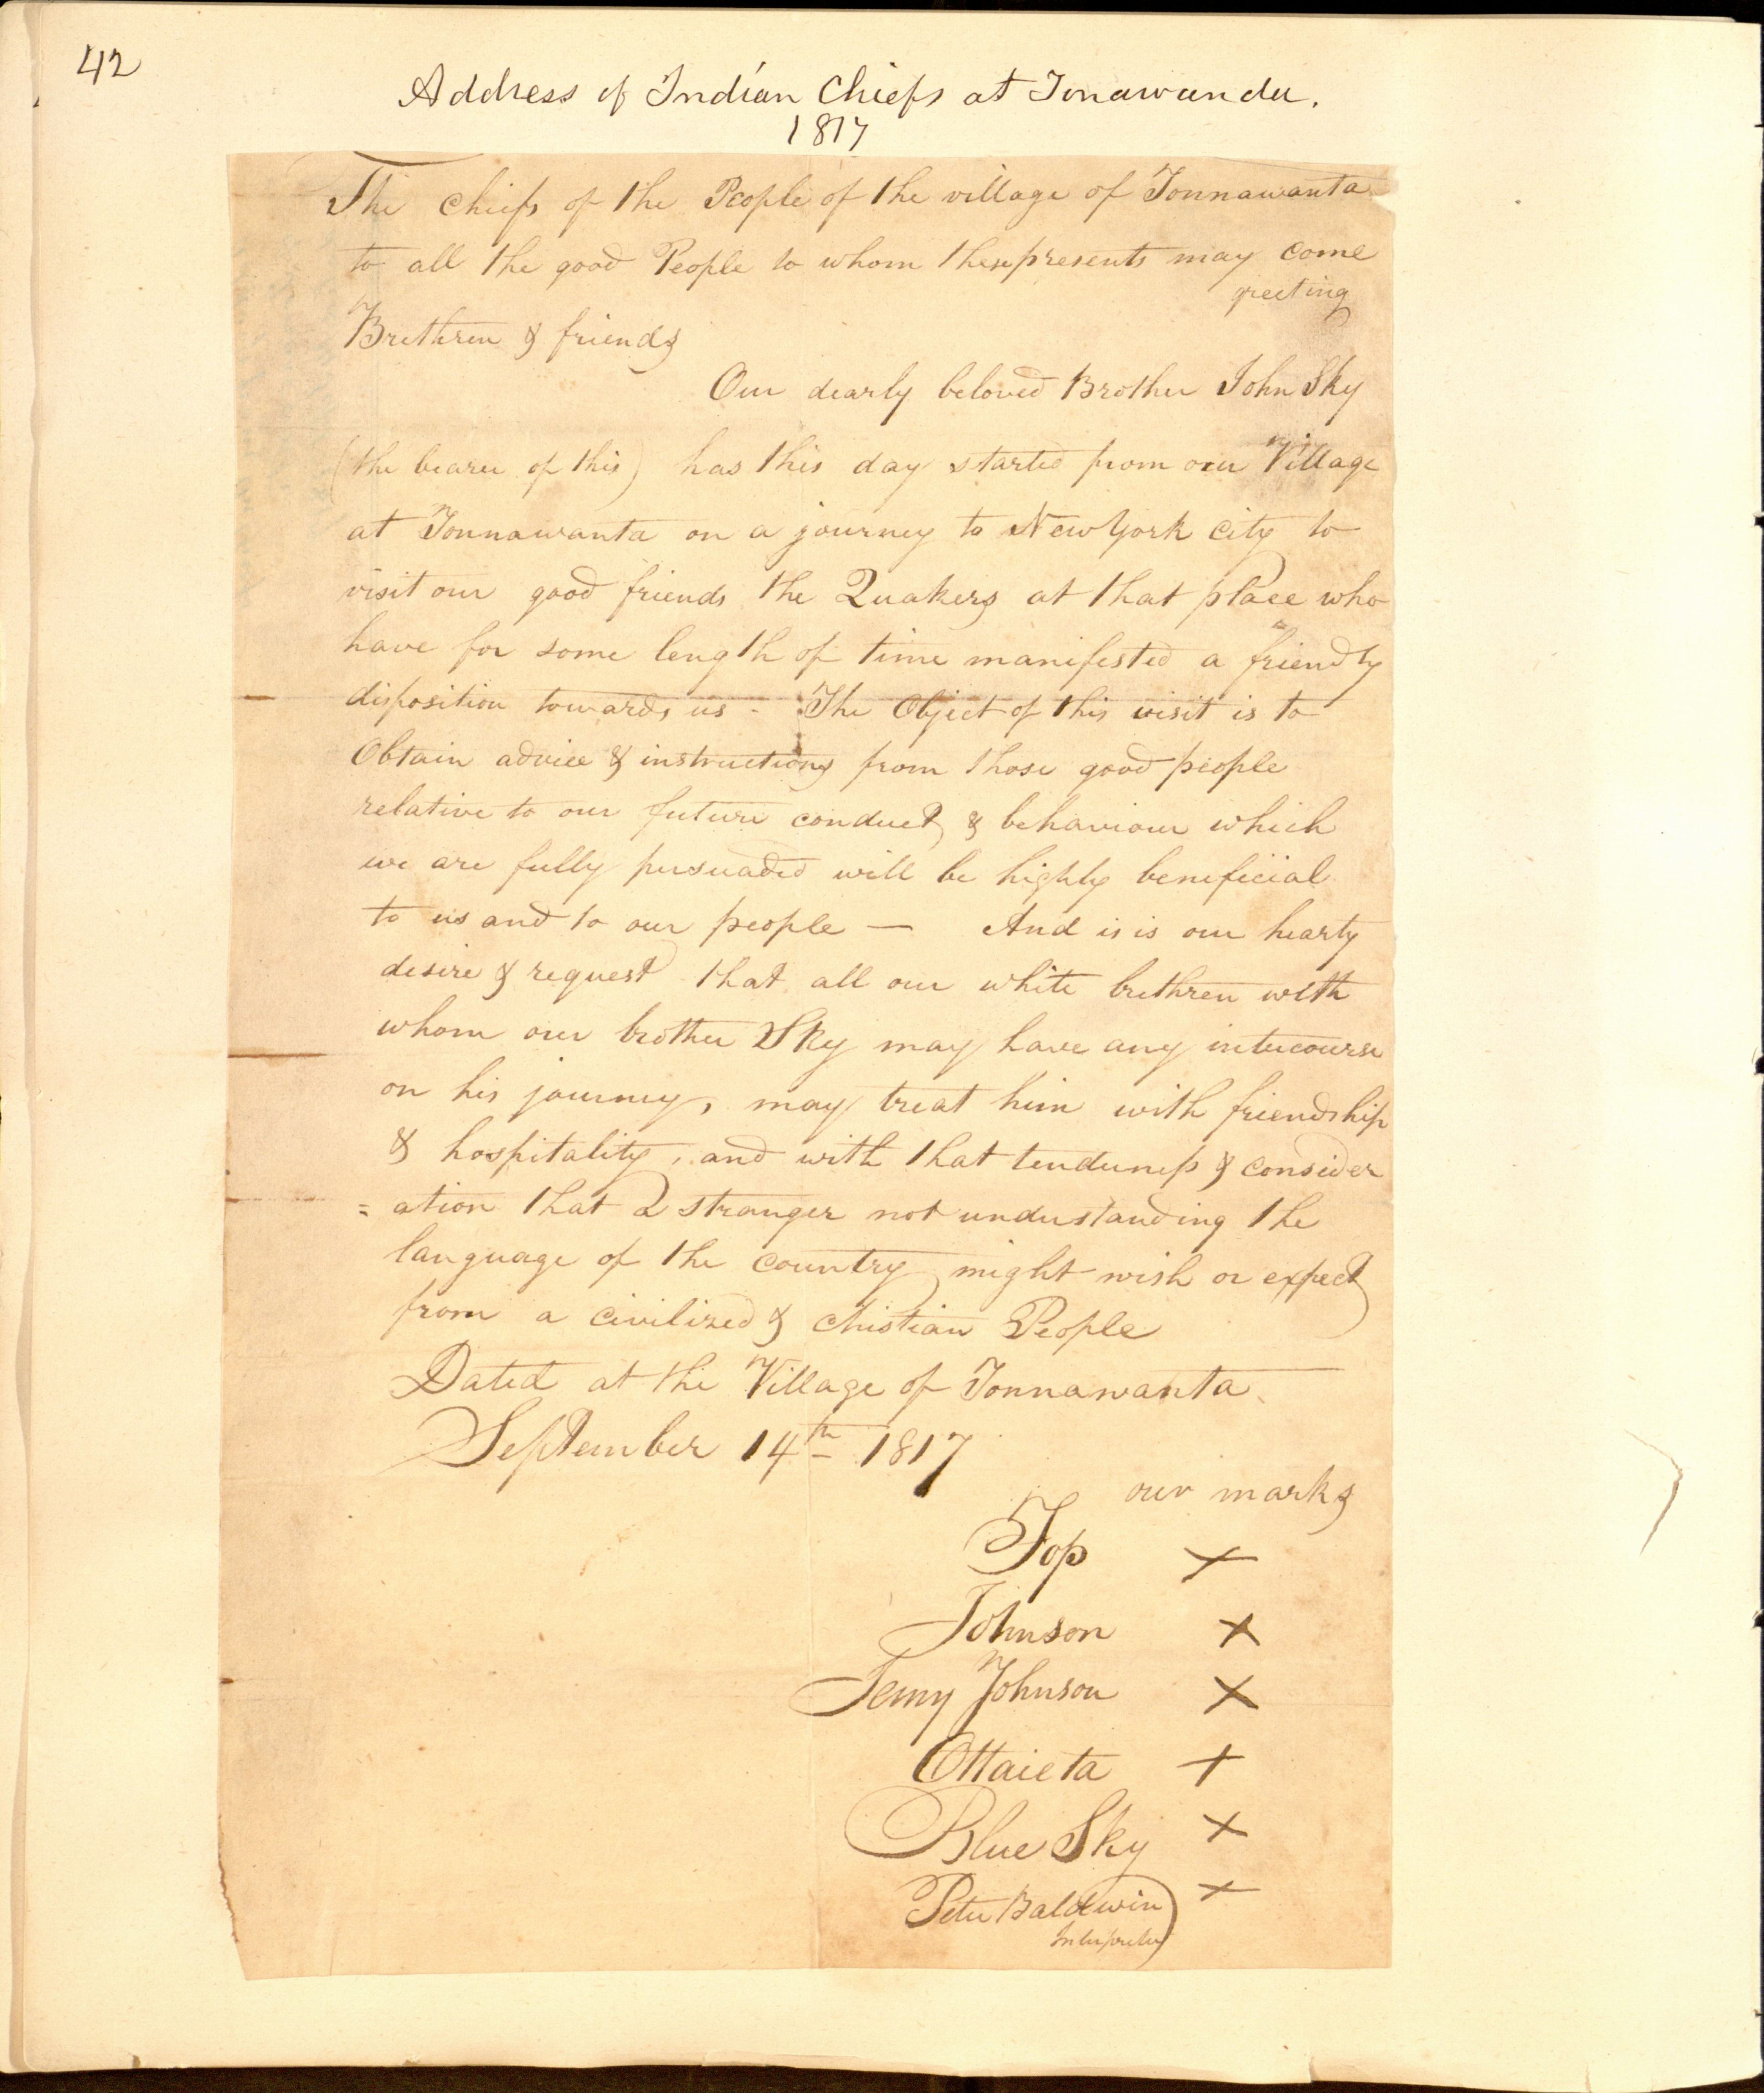 42
Address of Indian Chiefs at Tonawanda.
1817
The chiefs of the People of the village of Tonnawanta
to all the good People to whom these presents may come
greeting
Brethren & friends
Our dearly beloved Brother John Sky
(the bearer of this) has this day started from our Village
at Tonnawanta on a journey to New York City to
visit our good friends the Quakers at that place who
have for some length of time manifested a friendly
disposition towards us - The Object of this visit is to
Obtain advice & instructions from those good people
relative to our future conduct & behaviour which
we are fully persuaded will be highly beneficial
to us and to our people — And is is our hearty
desire & request that all our white brethren with
whom our brother Sky may have any intercourse
on his journey, may treat him with friendship
& hospitality, and with that tenderness & consider
= ation that a stranger not understanding the
language of the country might wish or expect
from a civilized & christian People
Dated at the Village of Tonnawanta
September 14th 1817
our marks
Top x
Johnson x
Jemy Johnson x
Ottaieta x
Blue Sky x
Peter Baldwin x
Interpreter